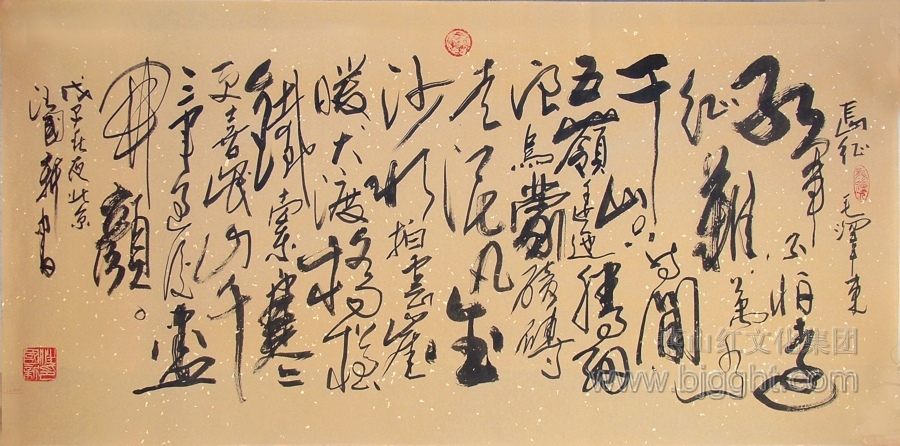 長征 毛澤東
紅軍不怕遠
征難萬水
千山只等閒
五嶺逶迤騰細
浪烏蒙磅礴
走泥丸金
沙水拍雲崖
暖大渡橋橫
鐵索寒
更喜岷山千
三軍過後盡
開顏
戊子秋夜北京
汪國新
山红文化集团
www.bjgght.com